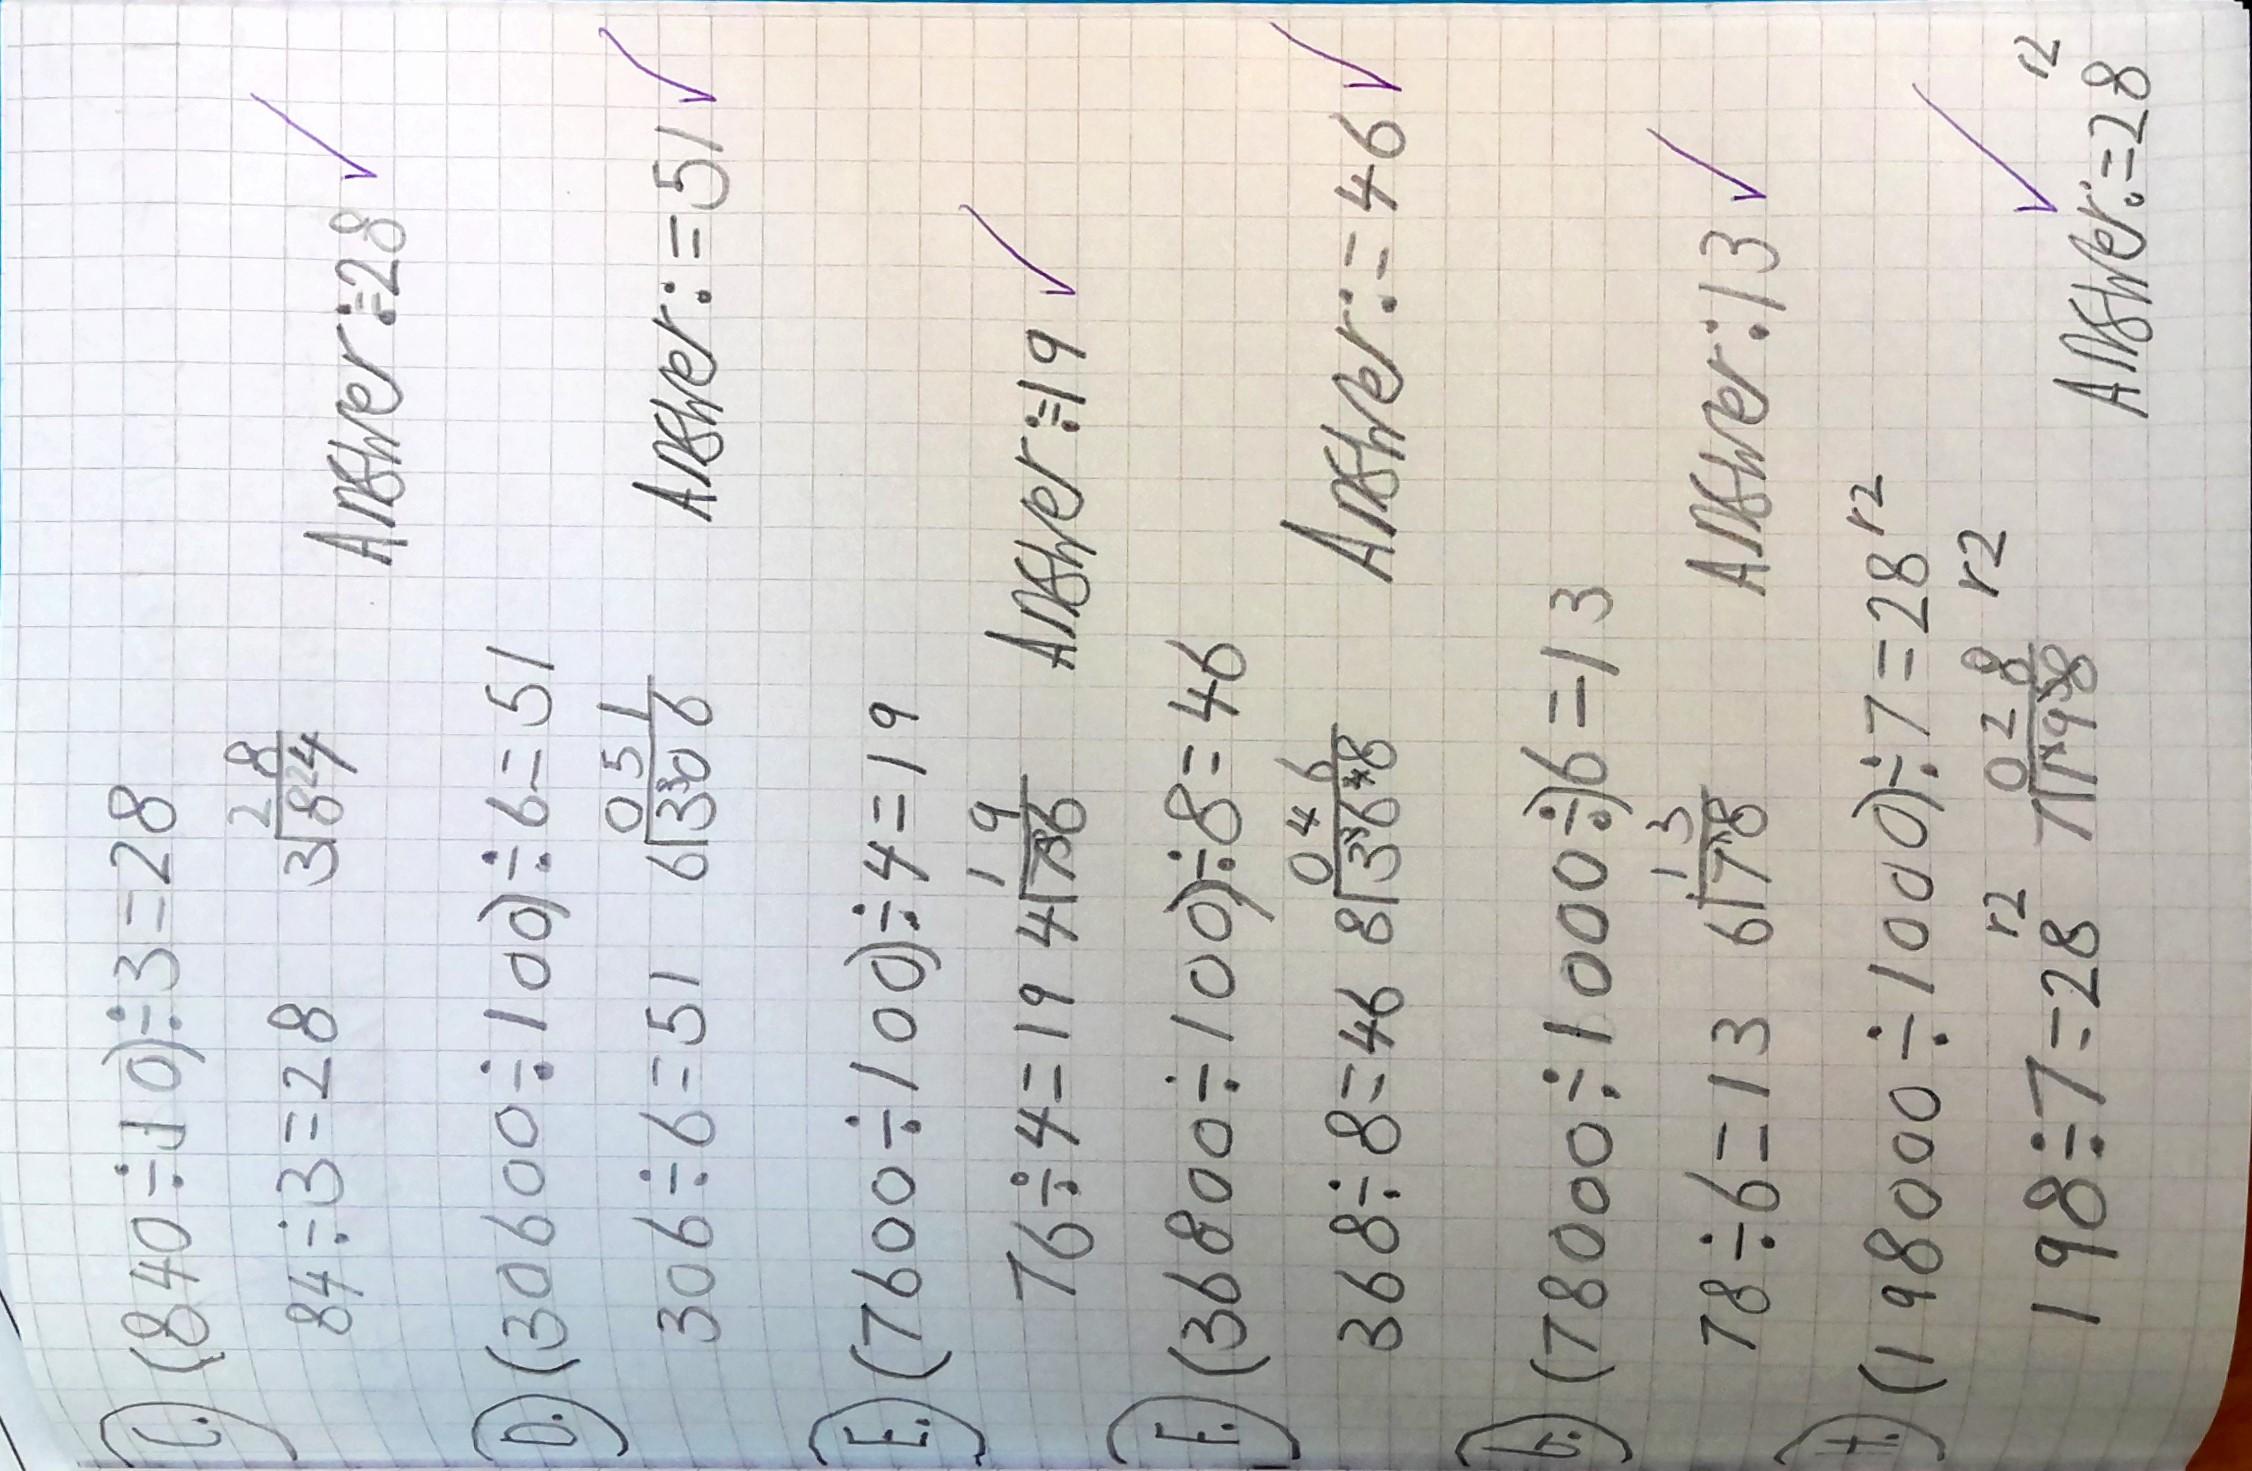 C.) (840÷10)÷3=28
2 8
84÷3=28 3⟌8²4
Answer:=28
D.) (30600÷100)÷6=51
0 5 1
306÷6=51 6⟌3³06
Answer:=51
E.) (7600÷100)÷4=19
1 9
76÷4=19 4⟌7³6
Answer:=19
F.) (36800÷100)÷8=46
0 4 6
368÷8=46 8⟌3³6⁴8
Answer:=46
G.) (78000÷1000÷)6=13
1 3
78÷6=13 6⟌7¹8
Answer:13
H.) (198000÷1000)÷7=28 r2
0 2 8 r2
198÷7=28 r2 7⟌1¹9⁵8
Answer:=28 r2